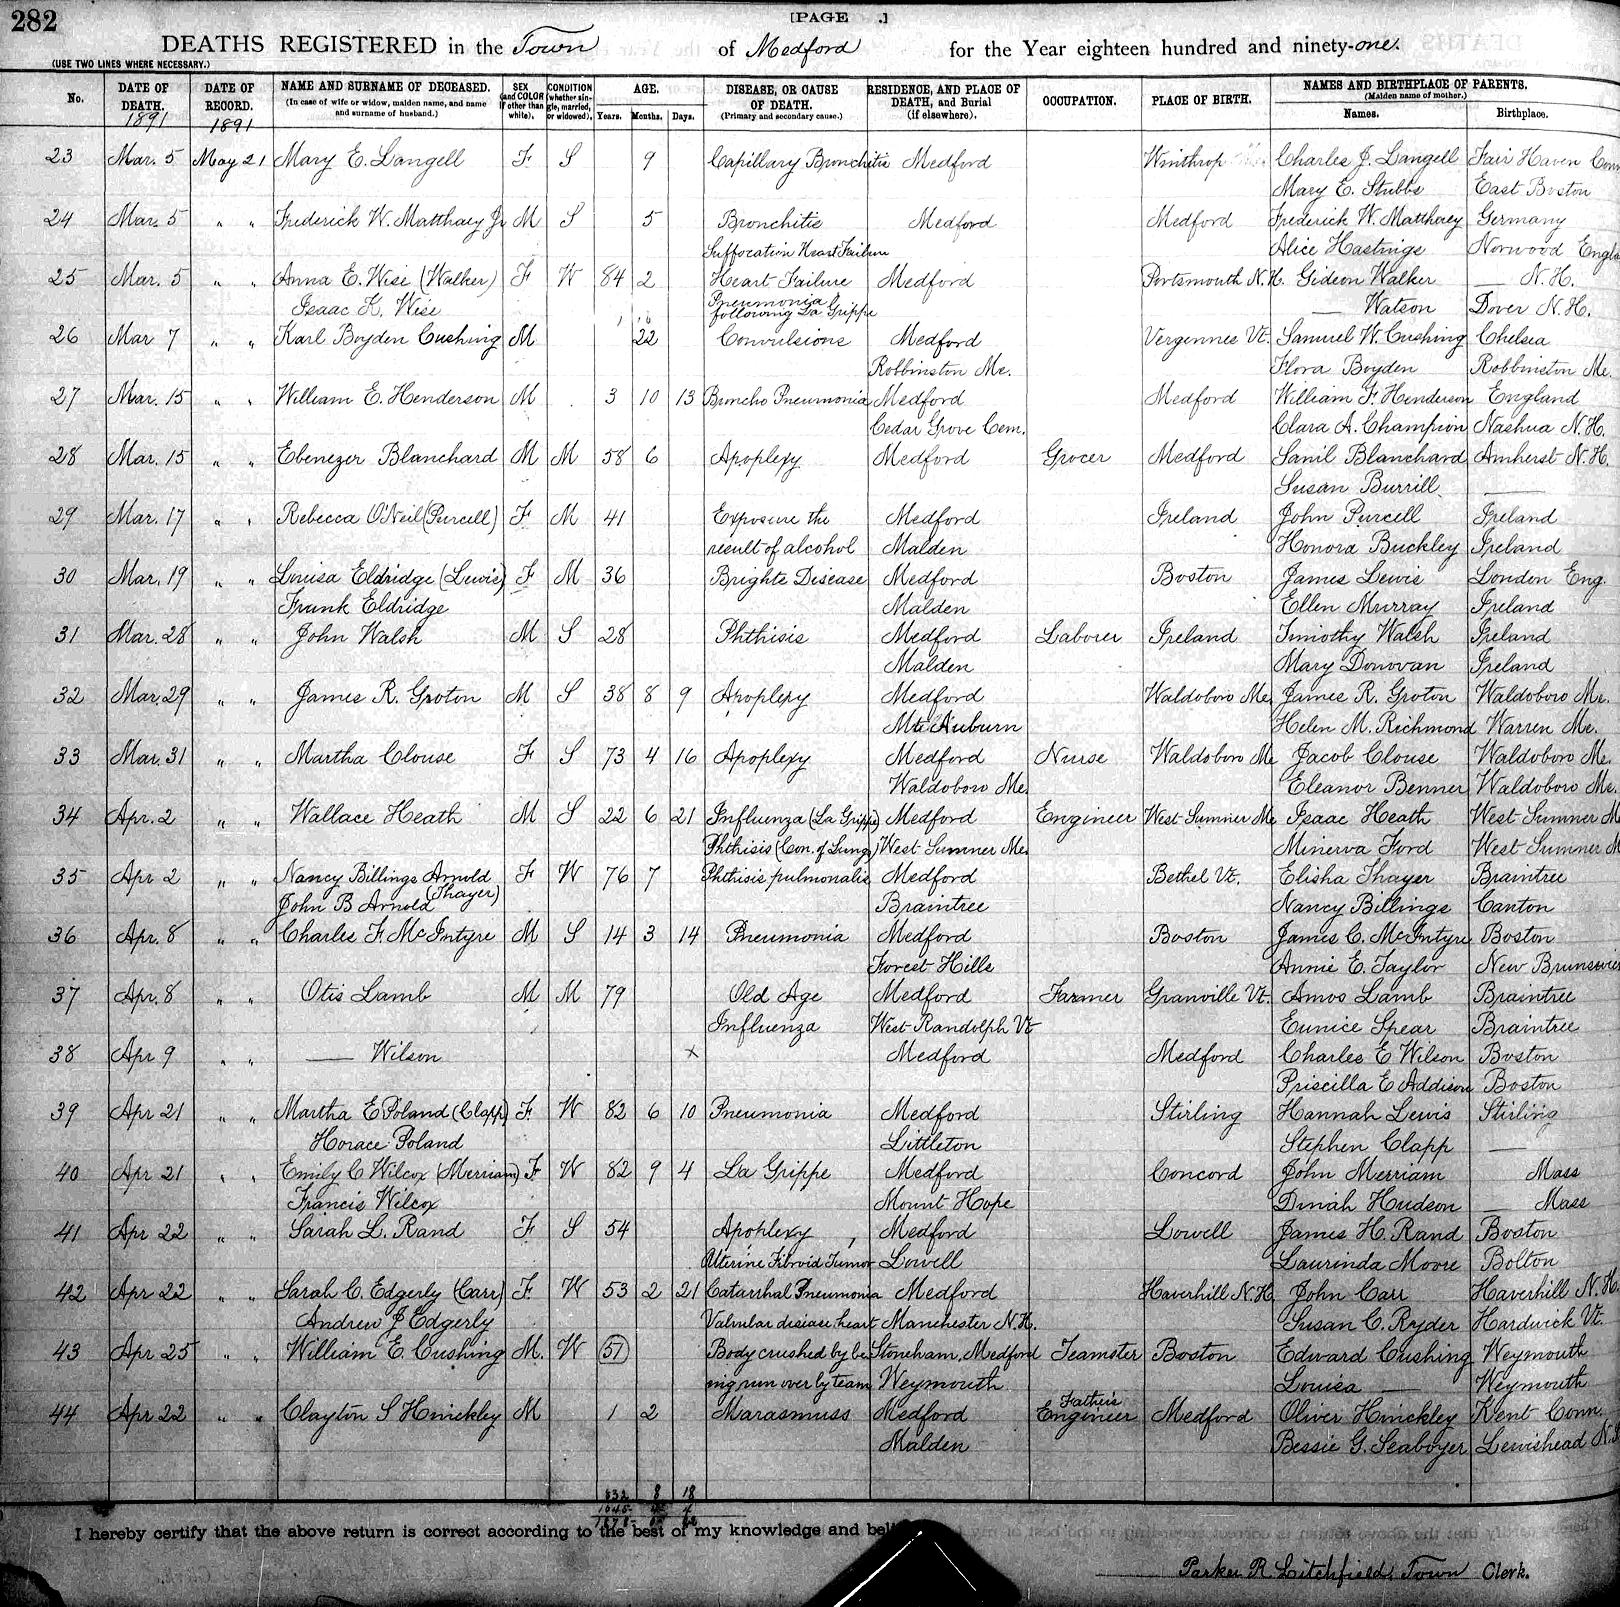 282
[PAGE .]
DEATHS REGISTERED in the Town of Medford for the Year eighteen hundred and ninety-one.
(USE TWO LINES WHERE NECESSARY.)
No. DATE OF DEATH. DATE OF RECORD. NAME AND SURNAME OF DECEASED. (In case of wife or widow, maiden name, and name and surname of husband.) SEX (and COLOR if other than white). CONDITION (whether single, married, or widowed). AGE. Years. Months. Days. DISEASE, OR CAUSE OF DEATH. (Primary and secondary cause.) RESIDENCE, AND PLACE OF DEATH, and Burial (if elsewhere). OCCUPATION. PLACE OF BIRTH. NAMES AND BIRTHPLACE OF PARENTS. (Maiden name of mother.) Names. Birthplace.
1891 1891
23 Mar. 5 May 21 Mary E. Langell F S 9 Capillary Bronchitis Medford Winthrop Charles J. Langell Fair Haven Conn
Mary E. Stubbs East Boston
24 Mar. 5 " " Frederick W. Matthaey Jr M S 5 Bronchitis Medford Medford Frederick W. Matthaey Germany
Suffocation Heart Failure Alice Hastings Norwood Engla
25 Mar. 5 " " Anna E. Wise (Walker) F W 84 2 Heart Failure Medford Portsmouth N.H. Gideon Walker — N.H.
Isaac K. Wise Pneumonia following La Grippe — Watson Dover N.H.
26 Mar 7 " " Karl Boyden Cushing M 22 Convulsions Medford Vergennes Vt. Samuel W. Cushing Chelsea
Robbinston Me. Flora Boyden Robbinston Me.
27 Mar. 15 " " William E. Henderson M 3 10 13 Broncho Pneumonia Medford Medford William F. Henderson England
Cedar Grove Cem. Clara A. Champion Nashua N.H.
28 Mar. 15 " " Ebenezer Blanchard M M 58 6 Apoplexy Medford Grocer Medford Sanil Blanchard Amherst N.H.
Susan Burrill —
29 Mar. 17 " " Rebecca O'Neil (Purcell) F M 41 Exposure the Medford Ireland John Purcell Ireland
result of alcohol Malden Honora Buckley Ireland
30 Mar. 19 " " Louisa Eldridge (Lewis) F M 36 Brights Disease Medford Boston James Lewis London Eng.
Frank Eldridge Malden Ellen Murray Ireland
31 Mar. 28 " " John Walsh M S 28 Phthisis Medford Laborer Ireland Timothy Walsh Ireland
Malden Mary Donovan Ireland
32 Mar. 29 " " James R. Groton M S 38 8 9 Apoplexy Medford Waldoboro Me. James R. Groton Waldoboro Me.
Mt. Auburn Helen M. Richmond Warren Me.
33 Mar. 31 " " Martha Clouse F S 73 4 16 Apoplexy Medford Nurse Waldoboro Me Jacob Clouse Waldoboro Me.
Waldoboro Me. Eleanor Benner Waldoboro Me.
34 Apr. 2 " " Wallace Heath M S 22 6 21 Influenza (La Grippe) Medford Engineer West Sumner Me Isaac Heath West Sumner M
Phthisis (Con. of Lungs) West Sumner Me. Minerva Ford West Sumner M
35 Apr 2 " " Nancy Billings Arnold (Thayer) F W 76 7 Phthisis pulmonalis Medford Bethel Vt. Elisha Thayer Braintree
John B Arnold Braintree Nancy Billings Canton
36 Apr. 8 " " Charles F. McIntyre M S 14 3 14 Pneumonia Medford Boston James C. McIntyre Boston
Forest Hills Annie E. Taylor New Brunswic
37 Apr. 8 " " Otis Lamb M M 79 Old Age Medford Farmer Granville Vt. Amos Lamb Braintree
Influenza West Randolph Vt Eunice Spear Braintree
38 Apr 9 " " — Wilson x Medford Medford Charles E Wilson Boston
Priscilla E Addison Boston
39 Apr 21 " " Martha E Poland (Clapp) F W 82 6 10 Pneumonia Medford Stirling Hannah Lewis Stirling
Horace Poland Littleton Stephen Clapp —
40 Apr 21 " " Emily C Wilcox (Merriam) F W 82 9 4 La Grippe Medford Concord John Merriam Mass
Francis Wilcox Mount Hope Dinah Hudson — Mass
41 Apr 22 " " Sarah L. Rand F S 54 Apoplexy, Medford Lowell James H. Rand Boston
Uterine Fibroid Tumor Lowell Laurinda Moore Bolton
42 Apr 22 " " Sarah C. Edgerly (Carr) F W 53 2 21 Catarrhal Pneumonia Medford Haverhill N.H. John Carr Haverhill N.H.
Andrew J Edgerly Valvular disease heart Manchester N.H. Susan C. Ryder Hardwick Vt.
43 Apr 25 " " William E. Cushing M. W 57 Body crushed by be- Stoneham, Medford Teamster Boston Edward Cushing Weymouth
ing run over by team Weymouth Louisa — Weymouth
44 Apr 22 " " Clayton S Hinckley M 1 2 Marasmuss Medford Father's Engineer Medford Oliver Hinckley Kent Conn.
Malden Bessie G. Seaboyer Lewishead N.S
832 8 18
I hereby certify that the above return is correct according to the best of my knowledge and beli
Parker R. Litchfield, Town Clerk.